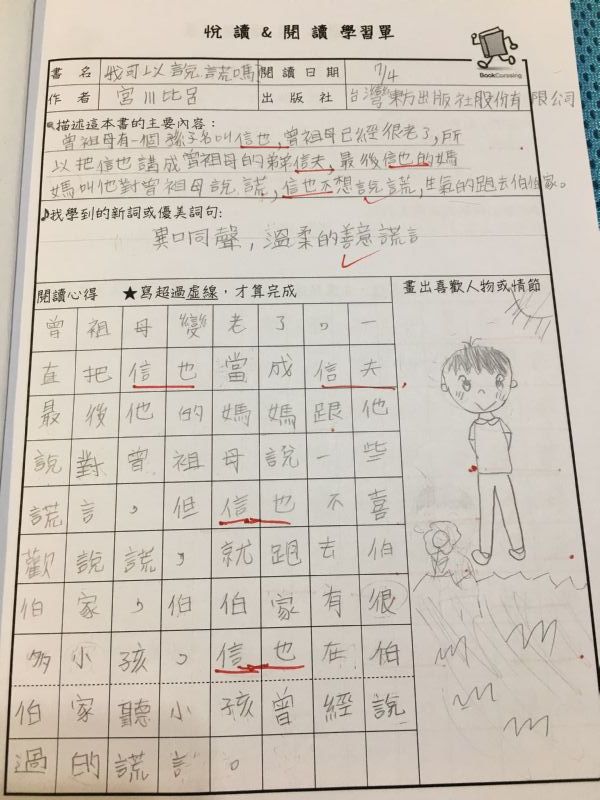 悅讀&閱讀學習單
BookCorssing
書名 我可以說謊嗎? 閱讀日期 7/4
作者 宮川比呂 出版社 台灣東方出版社股份有限公司
描述這本書的主要內容:
曾祖母有一個孫子名叫信也,曾祖母已經很老了,所
以把信也講成曾祖母的弟弟信夫,最後信也的媽
媽叫他對曾祖母說謊,信也不想說謊,生氣的跑去伯伯家。
我學到的新詞或優美詞句:
異口同聲,溫柔的善意謊言
閱讀心得 ★寫超過虛線,才算完成
畫出喜歡人物或情節
曾祖母變老了。一
直把信也當成信夫
最後他的媽媽跟他
說對曾祖母說一些
謊言,但信也不喜
歡說謊,就跑去伯
伯家,伯伯家有很
多小孩。信也在伯
伯家聽小孩曾經說
過的謊言。